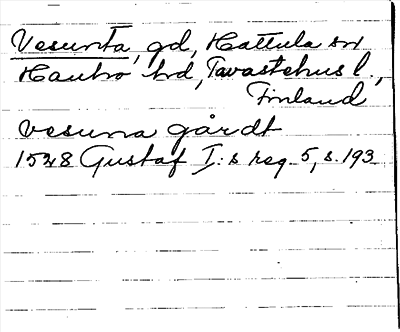 Vesunta, gd, Hattula sn
Hauho hrd, Tavastehus l.,
Finland
Vesuna gårdt
1528 Gustaf I:s reg. 5, s. 193